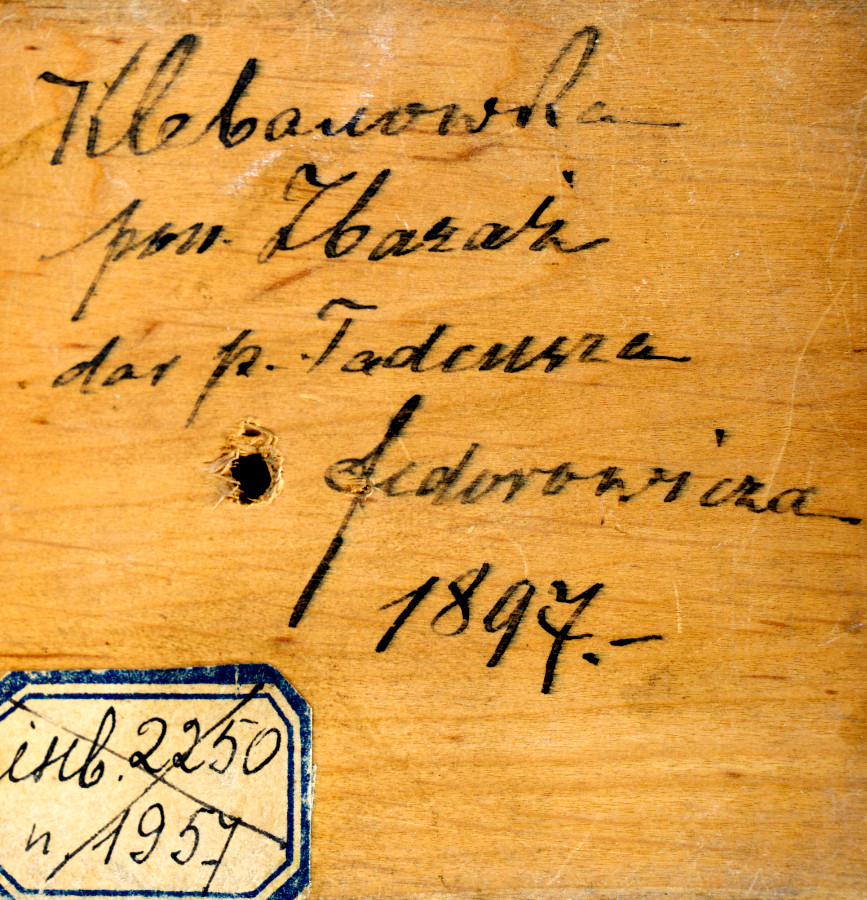 Klebanowka
pow. Zbaraż
dar p. Tadeusza
Fedorowicza
1897.–
inb. 2250
n. 1957